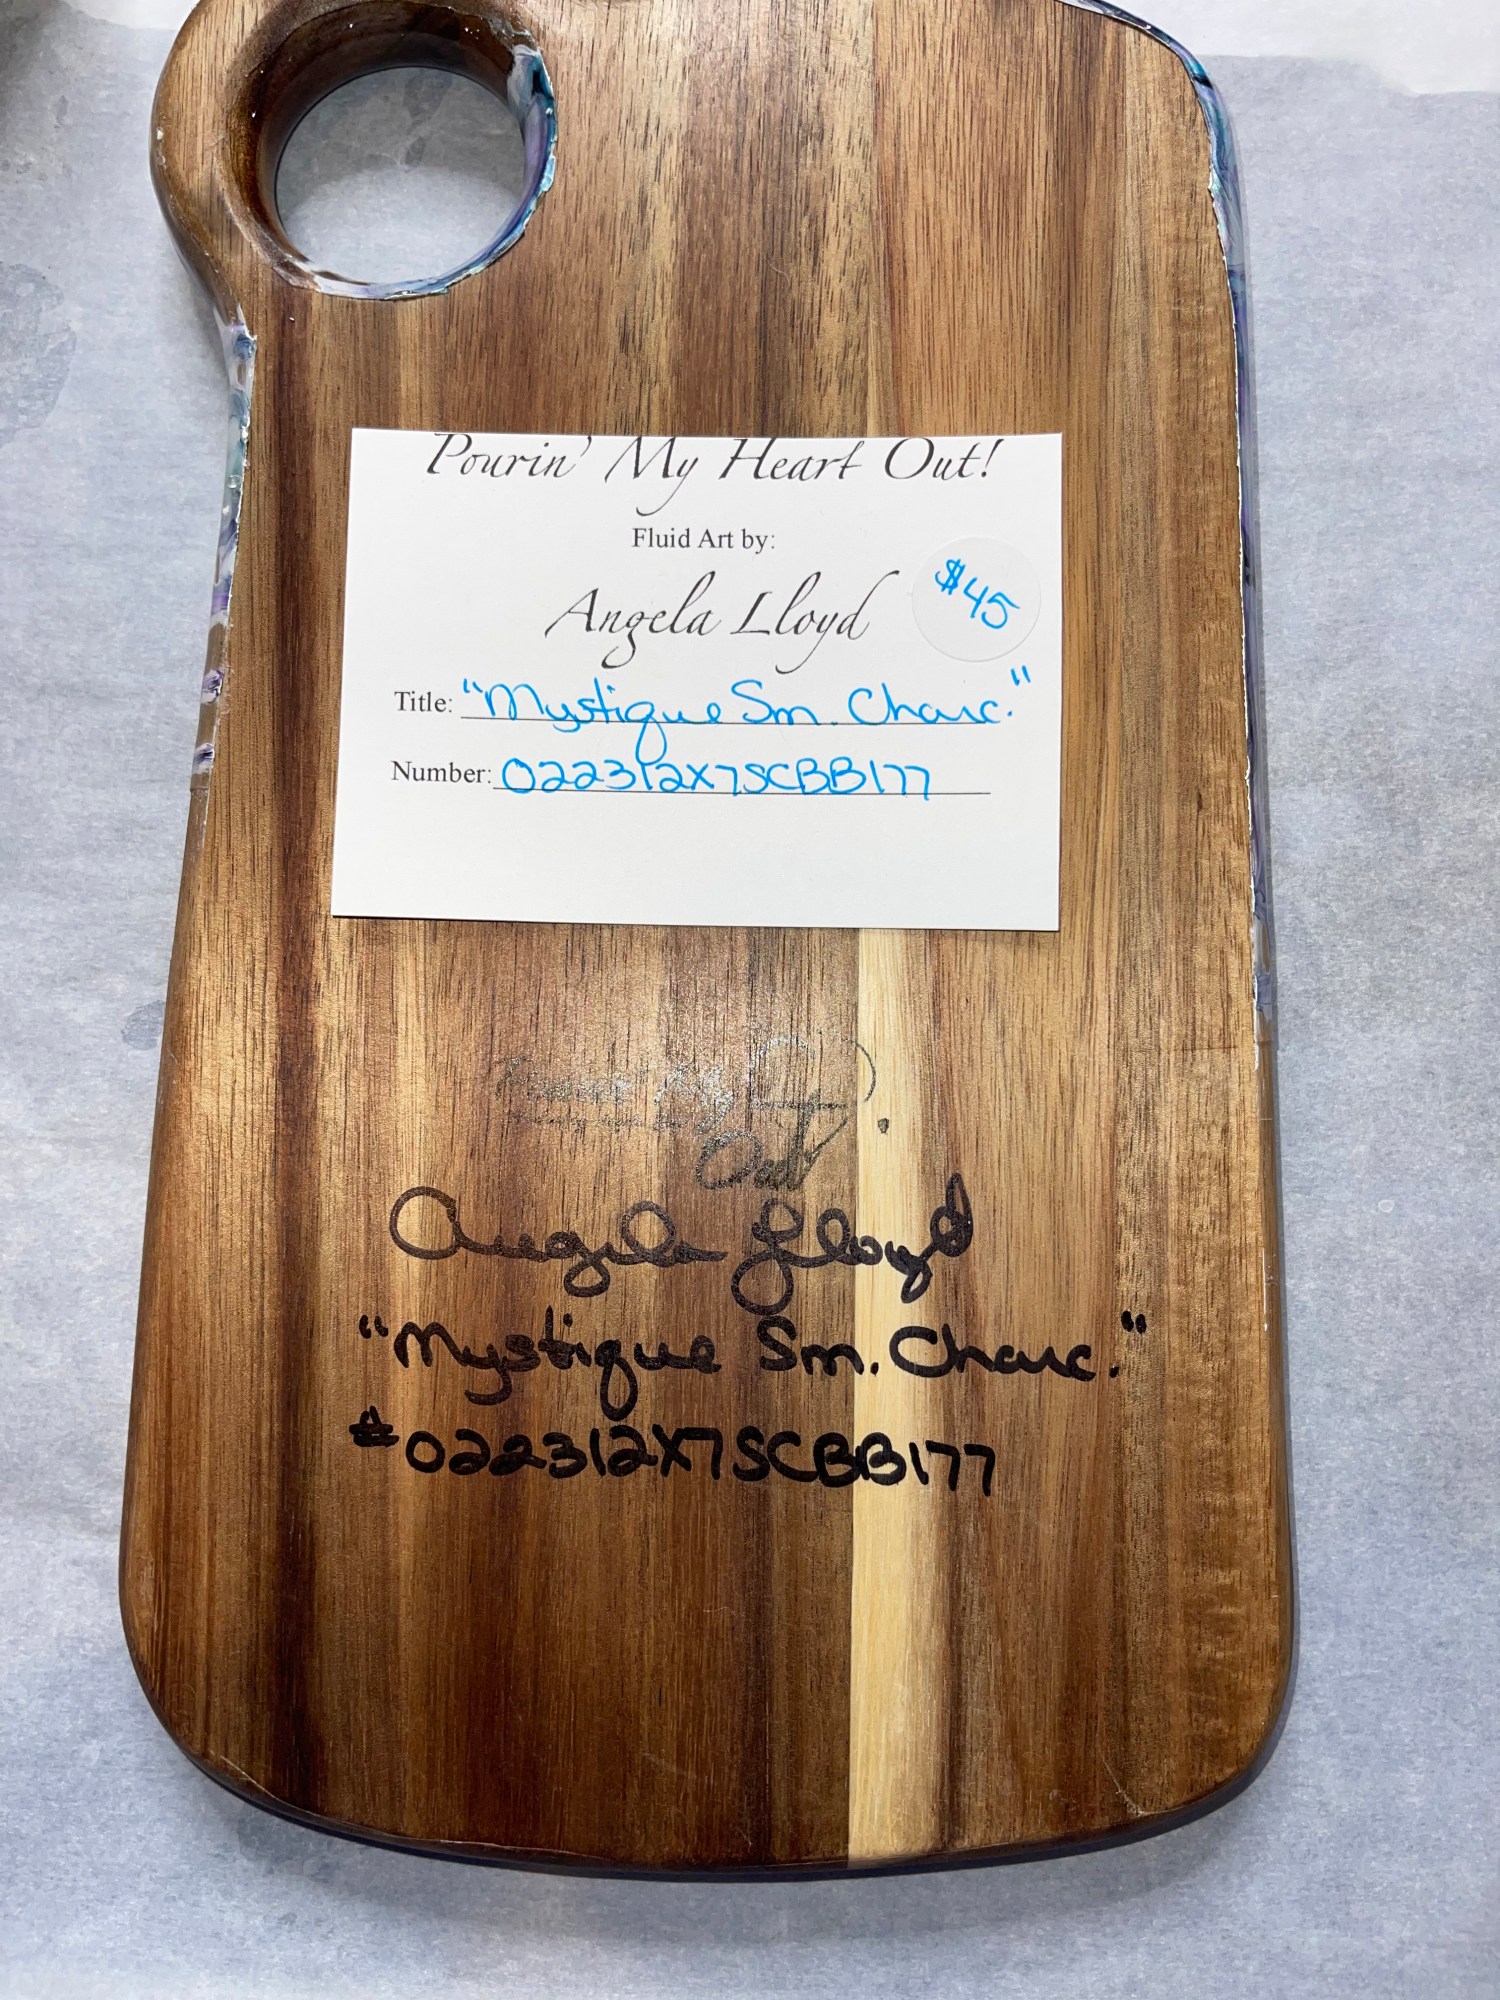 Pourin' My Heart Out!
Fluid Art by:
Angela Lloyd
$45
Title: "Mystique Sm. Charc."
Number: 022312X7SCBB177
Out
Angela Lloyd
"Mystique Sm. Charc."
#022312X7SCBB177